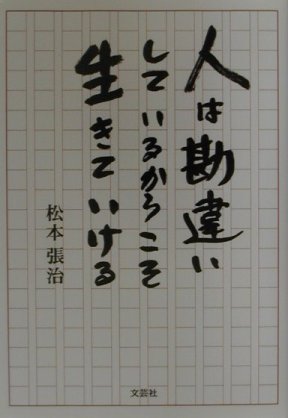 人は勘違い
しているからこそ
生きていける
松本張治
文芸社